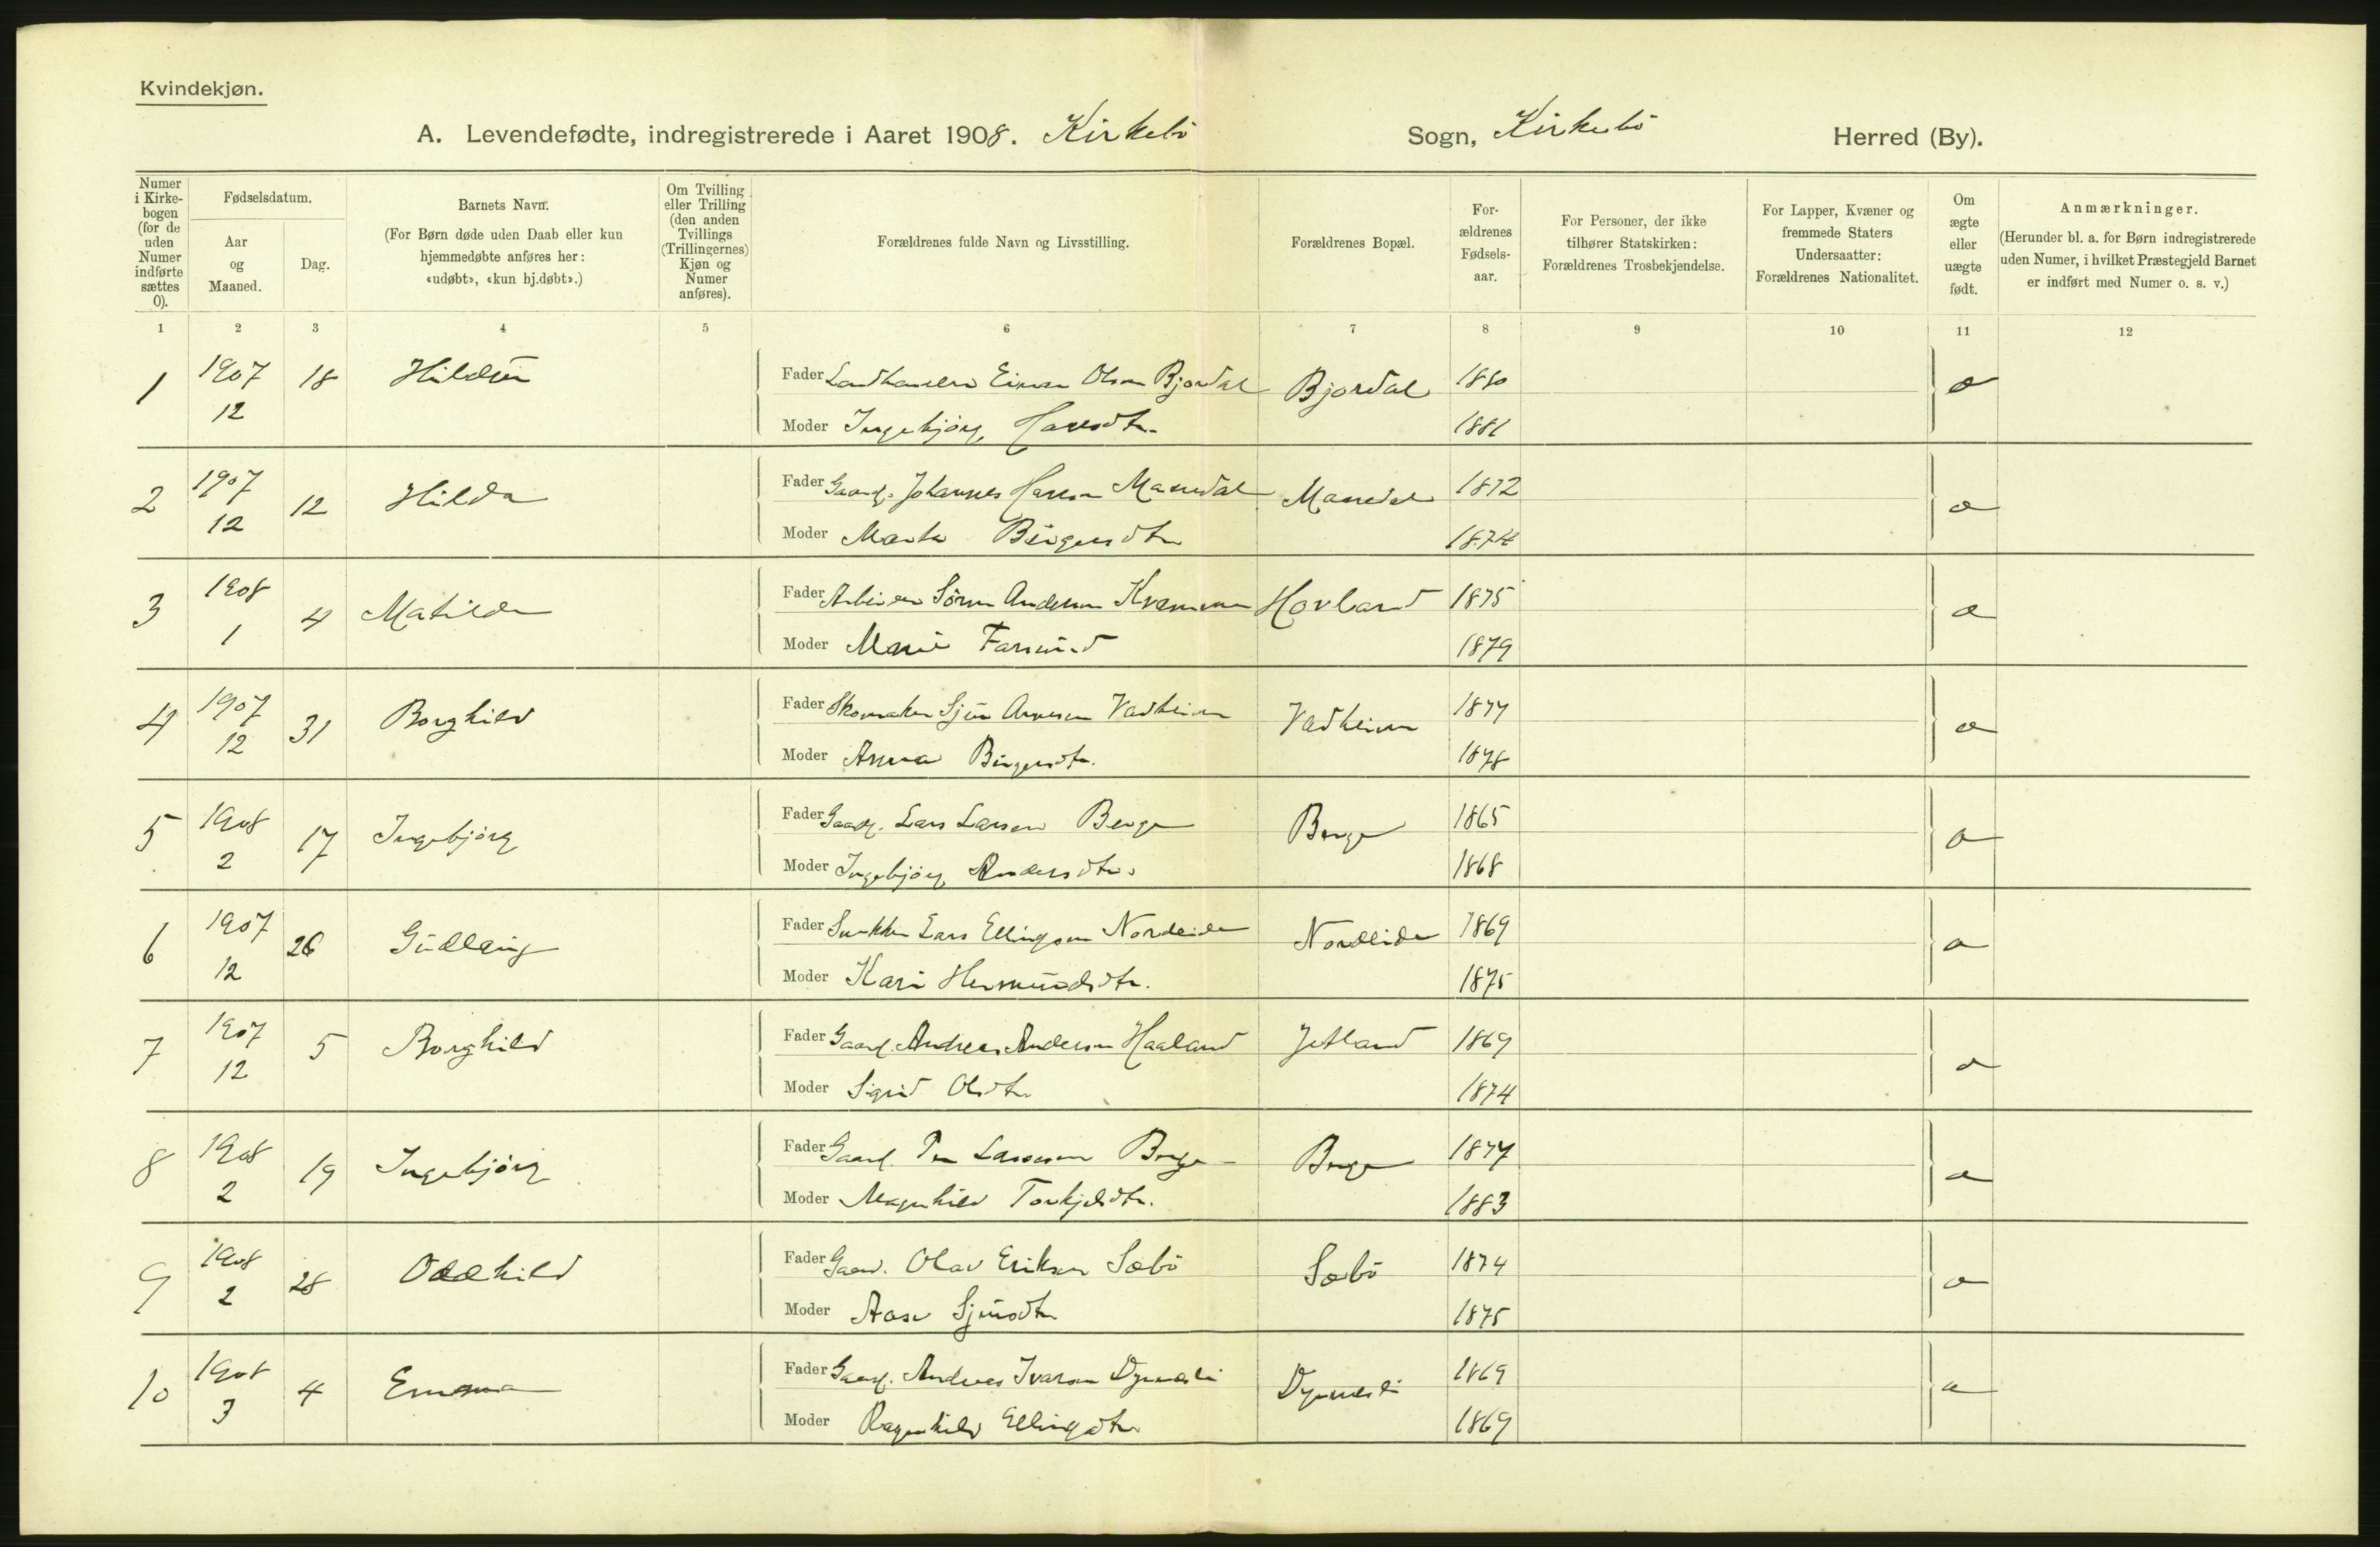 Kvindekjøn.
A. Levendefødte, indregistrerede i Aaret 1908. Kirkebö Sogn, Kirkebö Herred (By).
Numer i Kirke-bogen (for de uden Numer indførte sættes 0).
Fødselsdatum.
Aar og Maaned.
Dag.
Barnets Navn.
(For Børn døde uden Daab eller kun hjemmedøbte anføres her: «udøbt», «kun hj.døbt».)
Om Tvilling eller Trilling (den anden Tvillings (Trillingernes) Kjøn og Numer anføres).
Forældrenes fulde Navn og Livsstilling.
Forældrenes Bopæl.
For-ældrenes Fødsels-aar.
For Personer, der ikke tilhører Statskirken: Forældrenes Trosbekjendelse.
For Lapper, Kvæner og fremmede Staters Undersaatter: Forældrenes Nationalitet.
Om ægte eller uægte født.
Anmærkninger.
(Herunder bl. a. for Børn indregistrerede uden Numer, i hvilket Præstegjeld Barnet er indført med Numer o. s. v.)
1 2 3 4 5 6 7 8 9 10 11 12
1 1907 12 18 Hildur Fader Landhandler Einar Olsen Bjordal Bjordal 1880 æ
Moder Ingebjörg Hansdtr. 1881
2 1907 12 12 Hilda Fader Gaard. Johannes Hansen Massedal 1872 æ
Moder Marta Birgersdtr 1874
3 1908 1 4 Matilde Fader Arbeider Sören Andersen Kvamme Hovland 1875 æ
Moder Marie Farsund 1879
4 1907 12 31 Borghild Fader Skomaker Sjur Arnesen Vadheim Vadheim 1877 æ
Moder Anna Birgersdtr. 1878
5 1908 2 17 Ingebjörg Fader Gaard. Lars Larsen Berge Berge 1865 æ
Moder Ingebjörg Andersdtr. 1868
6 1907 12 26 Gudlaug Fader Snekker Lars Ellingsen Nordeide Nordeide 1869 æ
Moder Kari Hermundsdtr. 1875
7 1907 12 5 Borghild Fader Gaard. Andreas Andersen Haaland Jetland 1869 æ
Moder Sigrid Olsdtr 1874
8 1908 2 19 Ingebjörg Fader Gaard. Per Lassesen Berge Berge 1877 æ
Moder Magnhild Torkjelsdtr. 1883
9 1908 2 28 Oddhild Fader Gaard. Olav Eriksen Sæbö Sæbö 1874 æ
Moder Aase Sjursdtr 1875
10 1908 3 4 Emma Fader Gaard. Andreas Ivarsen 1869 æ
Moder Ragnhild Ellingsdtr 1869